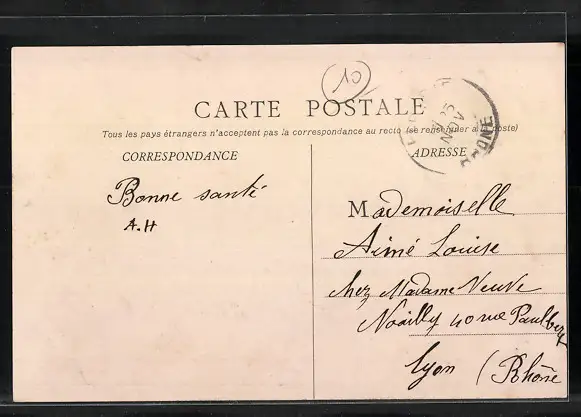 10
CARTE POSTALE
Tous les pays étrangers n'acceptent pas la correspondance au recto (se renseigner à la poste)
CORRESPONDANCE
ADRESSE
Bonne santé
A.H
Mademoiselle
Aimé Louise
chez Madame Veuve
Noailly 40 rue Paulbert
Lyon (Rhône
25
NOV
RHONE